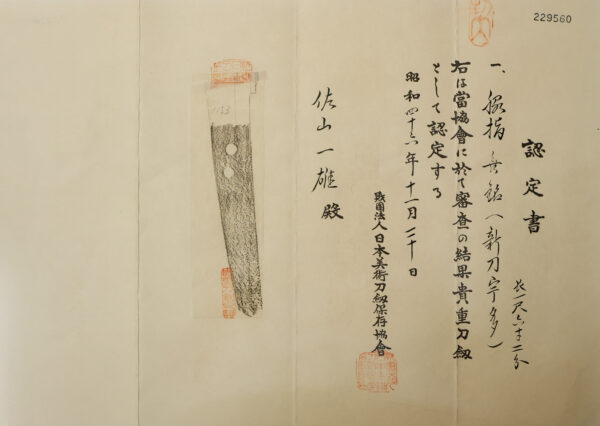 229560
認定書
一、脇指 無銘(新刀宇多)
長一尺六寸二分
右は當協會に於て審査の結果貴重刀劔
として認定する
昭和四十六年十一月二十日
財團法人日本美術刀劔保存協會
佐山一雄殿